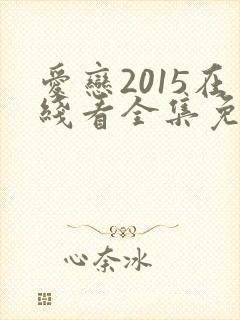 愛戀2015在
綫看全集免
心奈冰